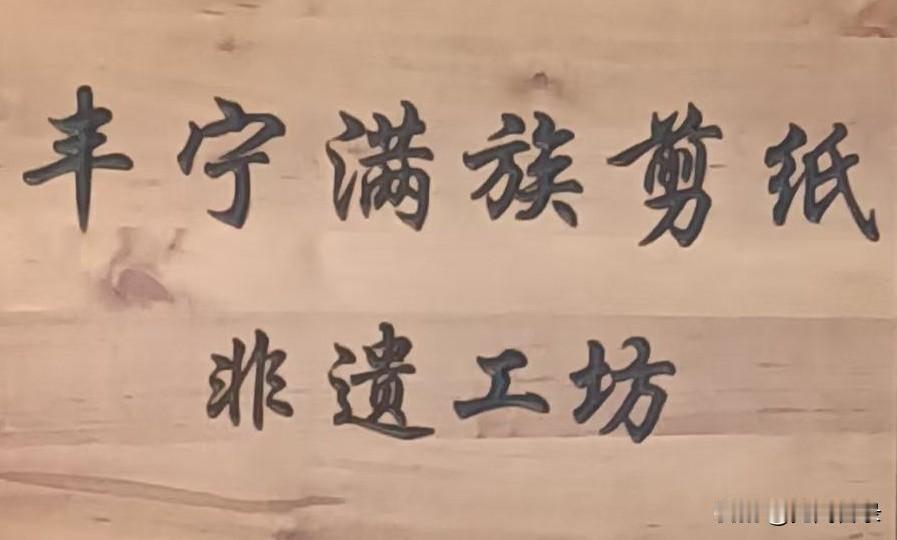 丰宁满族剪纸
非遗工坊